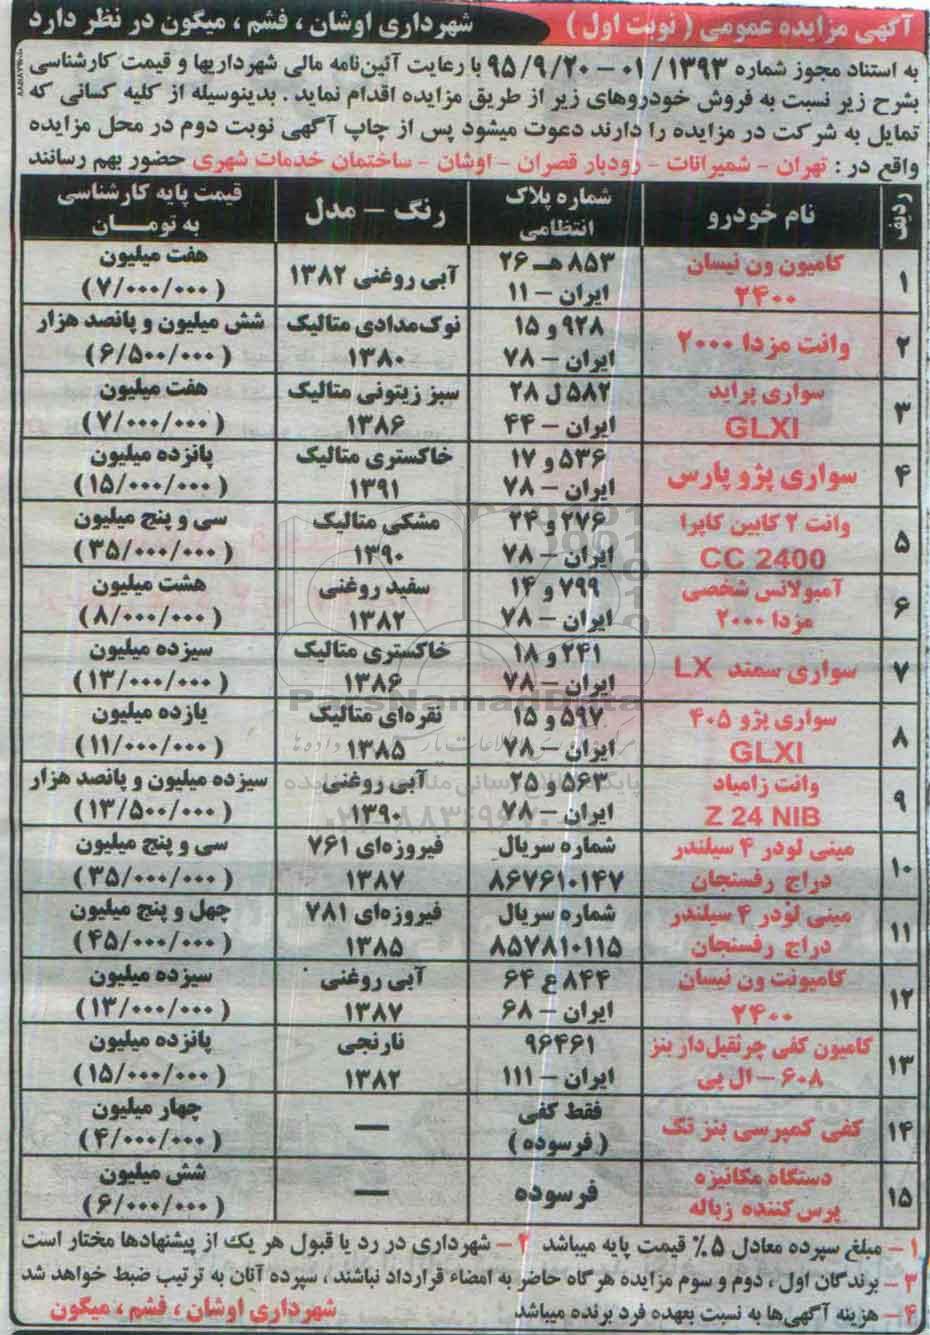 آگهی مزایده عمومی ( نوبت اول ) شهرداری اوشان ، فشم ، میگون در نظر دارد
به استناد مجوز شماره ۰۱/۱۳۹۳ – ۹۵/۹/۲۰ با رعایت آئین‌نامه مالی شهرداریها و قیمت کارشناسی
بشرح زیر نسبت به فروش خودروهای زیر از طریق مزایده اقدام نماید . بدینوسیله از کلیه کسانی که
تمایل به شرکت در مزایده را دارند دعوت میشود پس از چاپ آگهی نوبت دوم در محل مزایده
واقع در : تهران – شمیرانات – رودبار قصران – اوشان – ساختمان خدمات شهری حضور بهم رسانند
ردیف نام خودرو شماره پلاک انتظامی رنگ – مدل قیمت پایه کارشناسی به تومــان
۱ کامیون ون نیسان ۲۴۰۰ ۸۵۳ هـ ۲۶ ایران – ۱۱ آبی روغنی ۱۳۸۲ هفت میلیون (۷/۰۰۰/۰۰۰)
۲ وانت مزدا ۲۰۰۰ ۹۲۸ و ۱۵ ایران – ۷۸ نوک‌مدادی متالیک ۱۳۸۰ شش میلیون و پانصد هزار (۶/۵۰۰/۰۰۰)
۳ سواری پراید GLXI ۵۸۲ ل ۲۸ ایران – ۴۴ سبز زیتونی متالیک ۱۳۸۶ هفت میلیون (۷/۰۰۰/۰۰۰)
۴ سواری پژو پارس ۵۳۶ و ۱۷ ایران – ۷۸ خاکستری متالیک ۱۳۹۱ پانزده میلیون (۱۵/۰۰۰/۰۰۰)
۵ وانت ۲ کابین کاپرا CC 2400 ۲۷۶ و ۲۴ ایران – ۷۸ مشکی متالیک ۱۳۹۰ سی و پنج میلیون (۳۵/۰۰۰/۰۰۰)
۶ آمبولانس شخصی مزدا ۲۰۰۰ ۷۹۹ و ۱۴ ایران – ۷۸ سفید روغنی ۱۳۸۲ هشت میلیون (۸/۰۰۰/۰۰۰)
۷ سواری سمند LX ۲۴۱ و ۱۸ ایران – ۷۸ خاکستری متالیک ۱۳۸۶ سیزده میلیون (۱۳/۰۰۰/۰۰۰)
۸ سواری پژو ۴۰۵ GLXI ۵۹۷ و ۱۵ ایران – ۷۸ نقره‌ای متالیک ۱۳۸۵ یازده میلیون (۱۱/۰۰۰/۰۰۰)
۹ وانت زامیاد Z 24 NIB ۵۶۳ و ۲۵ ایران – ۷۸ آبی روغنی ۱۳۹۰ سیزده میلیون و پانصد هزار (۱۳/۵۰۰/۰۰۰)
۱۰ مینی لودر ۴ سیلندر دراج رفسنجان شماره سریال ۸۶۷۶۱۰۱۴۷ فیروزه‌ای ۷۶۱ ۱۳۸۷ سی و پنج میلیون (۳۵/۰۰۰/۰۰۰)
۱۱ مینی لودر ۴ سیلندر دراج رفسنجان شماره سریال ۸۵۷۸۱۰۱۱۵ فیروزه‌ای ۷۸۱ ۱۳۸۵ چهل و پنج میلیون (۴۵/۰۰۰/۰۰۰)
۱۲ کامیونت ون نیسان ۲۴۰۰ ۸۴۴ ع ۶۴ ایران – ۶۸ آبی روغنی ۱۳۸۷ سیزده میلیون (۱۳/۰۰۰/۰۰۰)
۱۳ کامیون کفی جرثقیل‌دار بنز ۶۰۸ – ال پی ۹۶۴۶۱ ایران – ۱۱۱ نارنجی ۱۳۸۲ پانزده میلیون (۱۵/۰۰۰/۰۰۰)
۱۴ کفی کمپرسی بنز تک فقط کفی (فرسوده) — چهار میلیون (۴/۰۰۰/۰۰۰)
۱۵ دستگاه مکانیزه پرس‌کننده زباله فرسوده — شش میلیون (۶/۰۰۰/۰۰۰)
۱ – مبلغ سپرده معادل ۵٪ قیمت پایه میباشد ۲ – شهرداری در رد یا قبول هر یک از پیشنهادها مختار است
۳ – برندگان اول ، دوم و سوم مزایده هرگاه حاضر به امضاء قرارداد نباشند ، سپرده آنان به ترتیب ضبط خواهد شد
۴ – هزینه آگهی‌ها به نسبت بعهده فرد برنده میباشد شهرداری اوشان ، فشم ، میگون
ParsNamadData